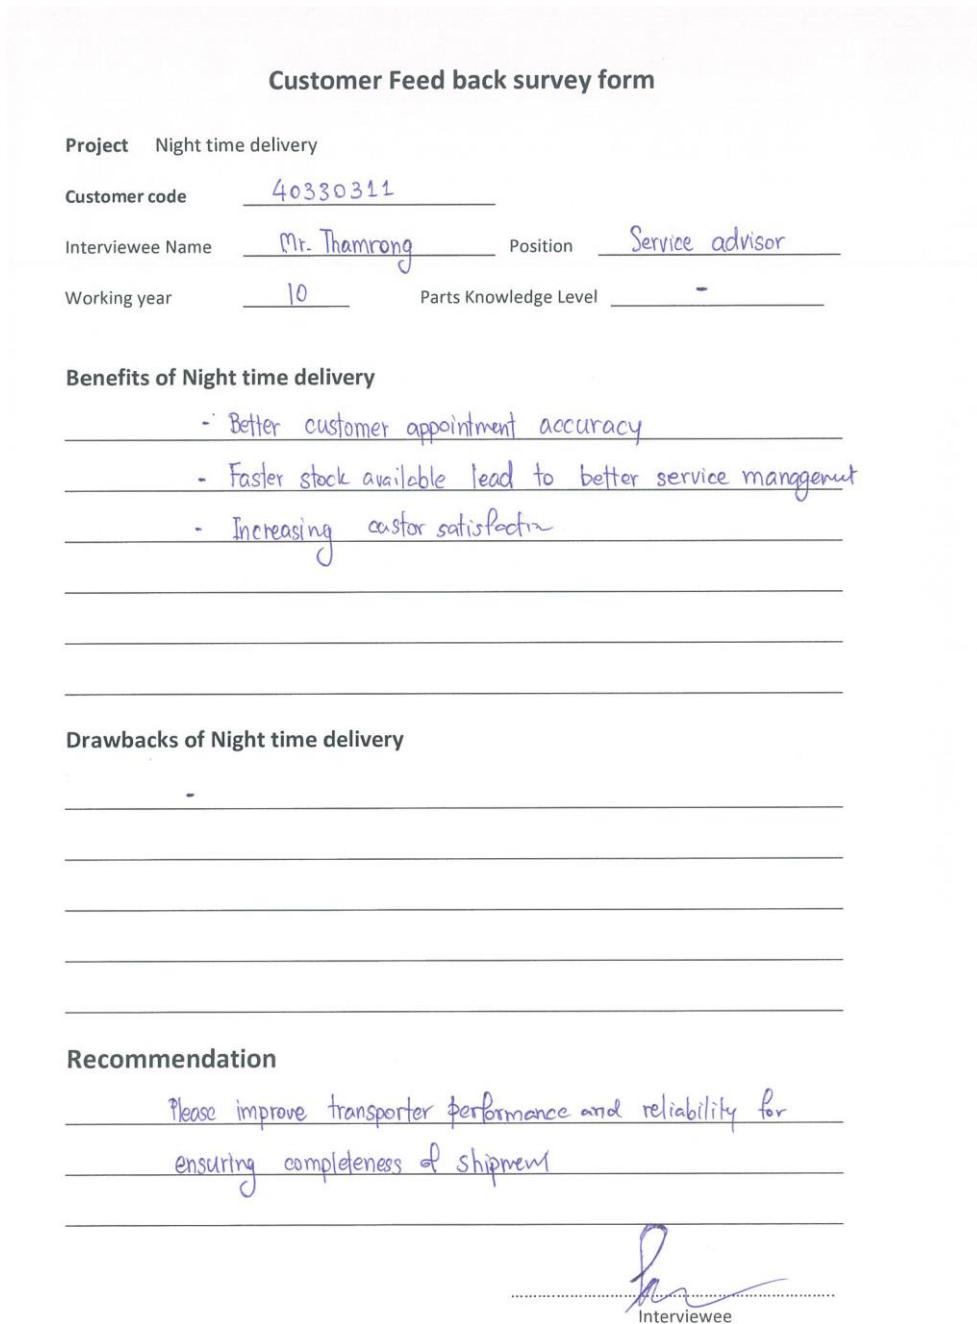 Customer Feed back survey form
Project Night time delivery
Customer code 40330311
Interviewee Name Mr. Thamrong Position Service advisor
Working year 10 Parts Knowledge Level -
Benefits of Night time delivery
- Better customer appointment accuracy
- Faster stock available lead to better service
- Increasing
Drawbacks of Night time delivery
-
Recommendation
Please improve transporter performance and reliability for
ensuring completeness of shipment
Interviewee